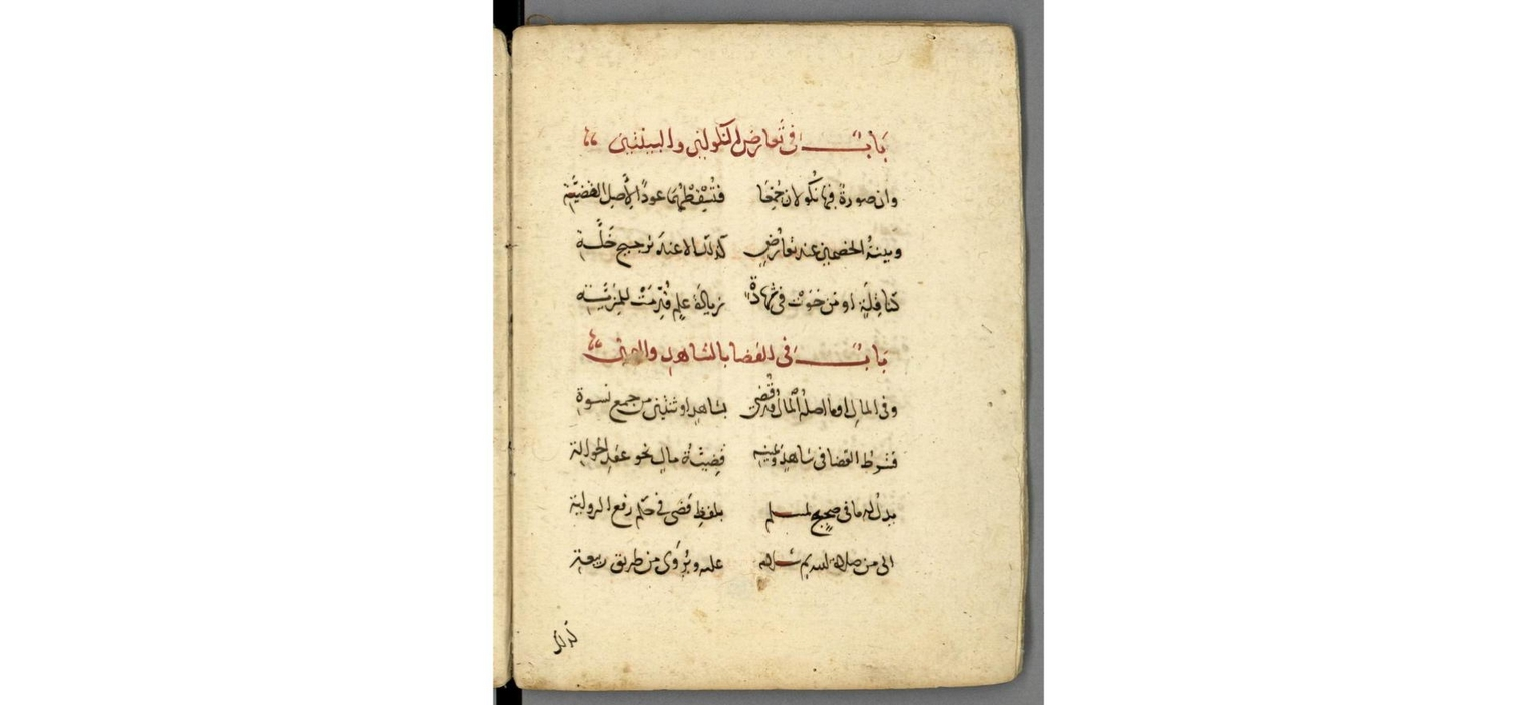 باب في تعارض النكولين والبينتين
وان صورة فيها نكولان جمعا فتسقطهما عودا لأصل القضية
وبينة الخصمين عند تعارض كذلك الا عند ترجيح خلة
كنافلة او من خوت في شهادة زيادة علم قدمت للمزية
باب في القضا بالشاهد واليمين
وفي المال او ما اصله المال قد قضي بشاهد او ثنتين من جمع نسوة
فشرط القضا في شاهد ويمينه قضية مال نحو عقد الحوالة
يدل له ما في صحيح لمسلم بلفظ قضى في حكم رفع الرواية
الى من صلاة الله ثم سلامه عليه ويروى من طريق ربيعة
كذلك